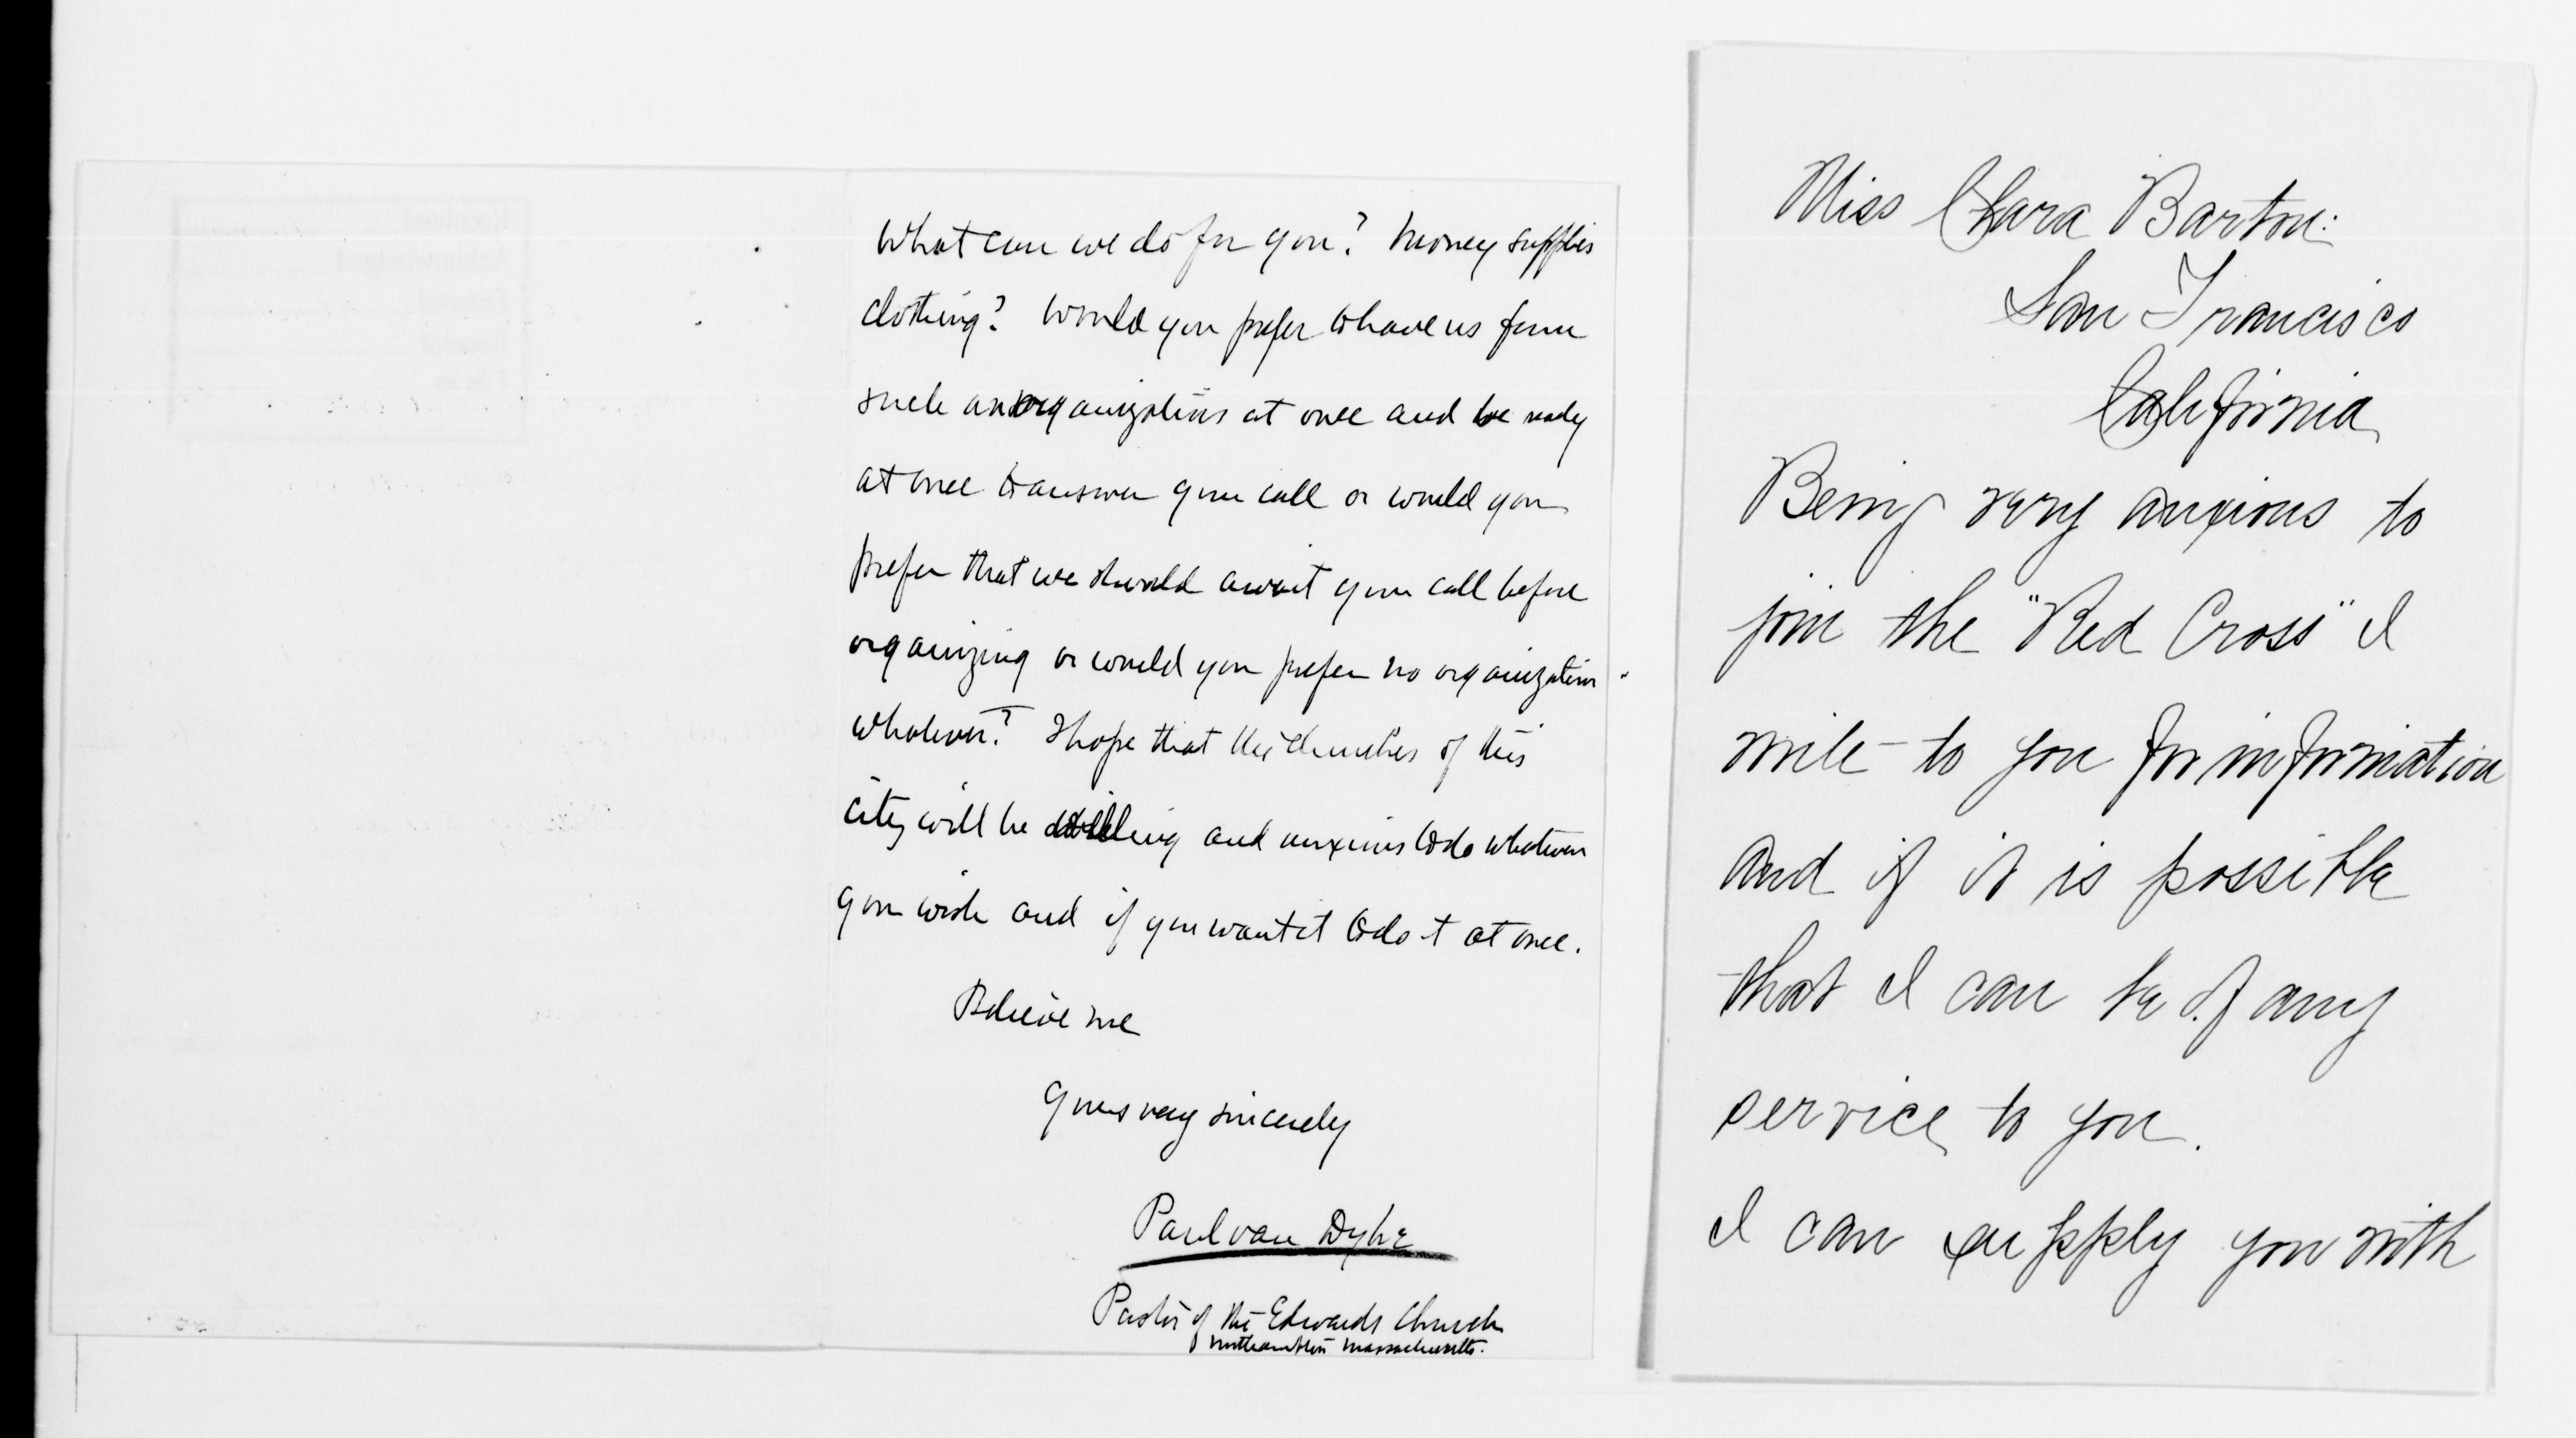 What can we do for you? Money supplies
clothing? Would you prefer to have us form
such an organization at once and be ready
at once to answer your call or would you
prefer that we should await your call before
organizing or would you prefer no organization
whatever? I hope that the churches of this
city will be willing and anxious to do whatever
you wish and if you want it to do it at once.
Believe me
Yours very sincerely
Paul van Dyke
Pastor of the Edwards Church
Northampton Massachusetts.
Miss Clara Barton:
San Francisco
California
Being very anxious to
join the "Red Cross" I
write to you for information
and if it is possible
that I can be of any
service to you.
I can supply you with